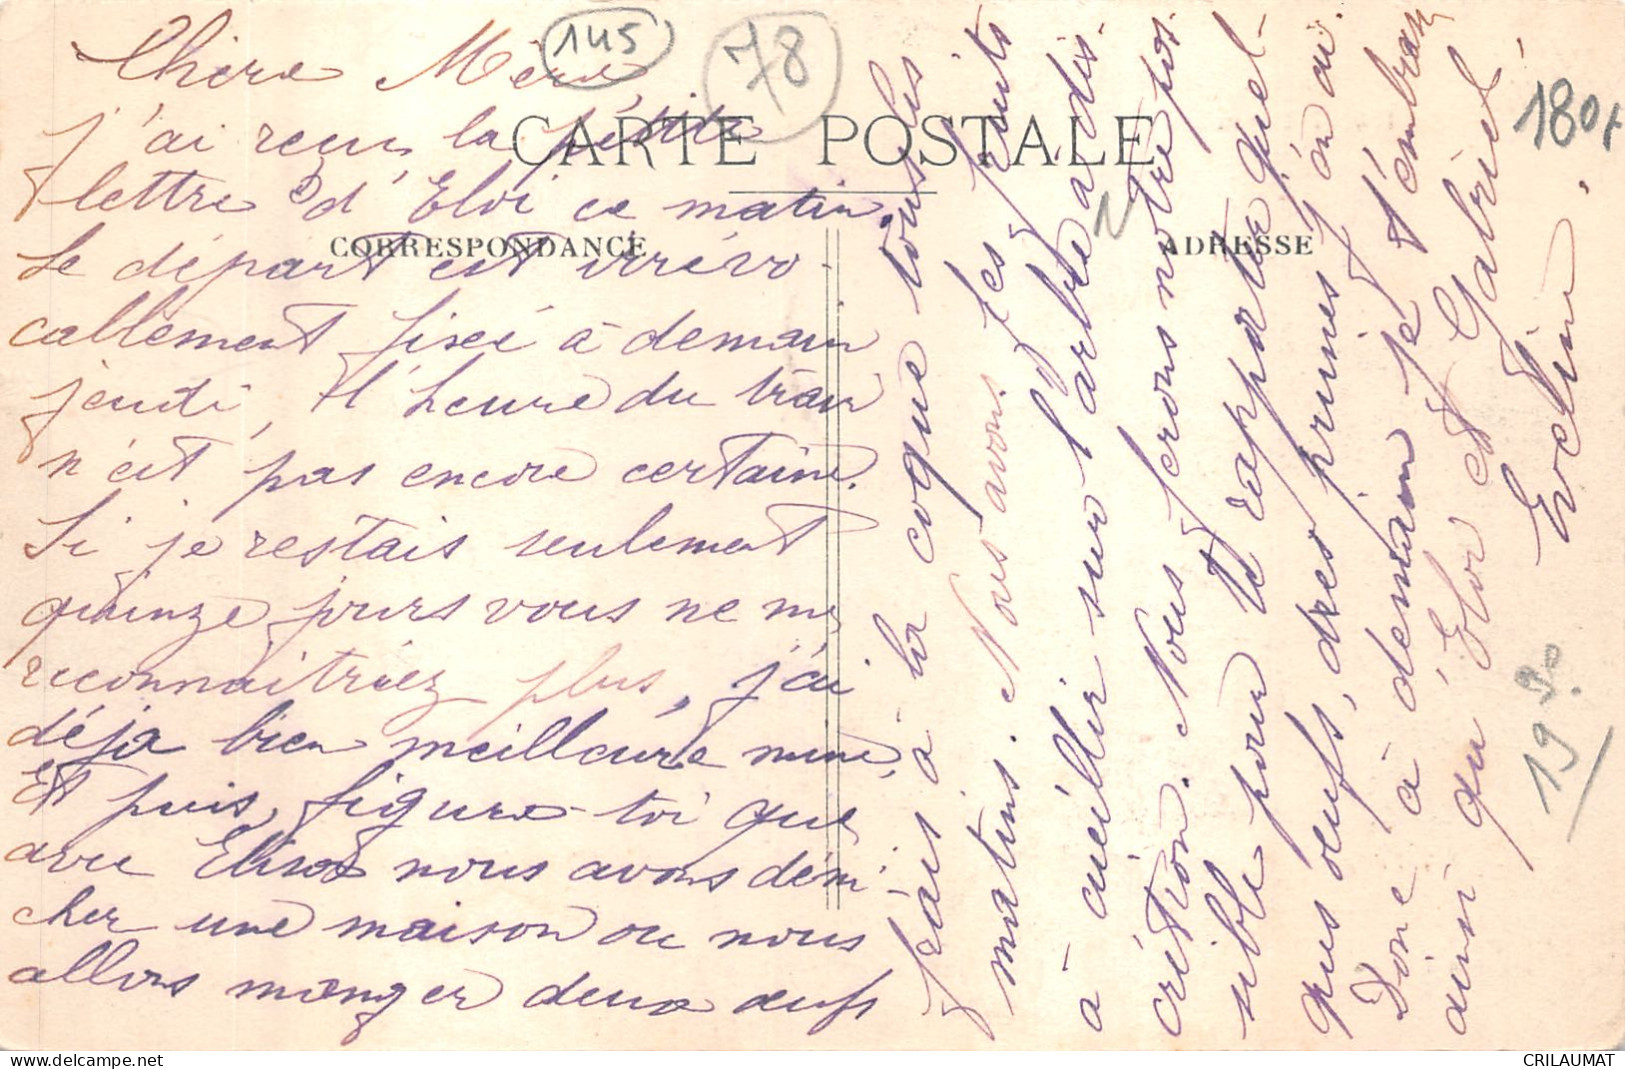 145
78
180f
CARTE POSTALE
CORRESPONDANCE
ADRESSE
N
Chère Mère
j'ai reçu la petite
lettre d'Eloi ce matin.
Le départ est irrévo-
cablement fixé à demain
jeudi, l'heure du train
n'est pas encore certaine.
Si je restais seulement
quinze jours vous ne me
reconnaitriez plus, j'ai
déja bien meilleure mine,
Et puis, figure-toi que
avec Elisa nous avons déni-
cher une maison ou nous
allons manger deux œufs
frais à la coque tous les
matins. Nous avons les fruits
à cueillir sur l'arbre à dis-
crétion. Nous ferons notre pos-
sible pour te rapporter quel-
ques œufs, des prunes y en ai.
Donc à demain je t'embrasse
ainsi qu'Eloi et Gabriel.
Evelina.
19 30
CRILAUMAT